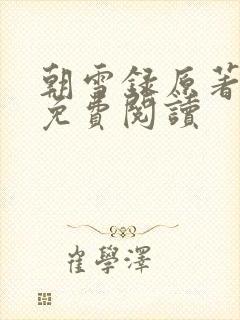 朝雪録原著
免費閱讀
崔學澤